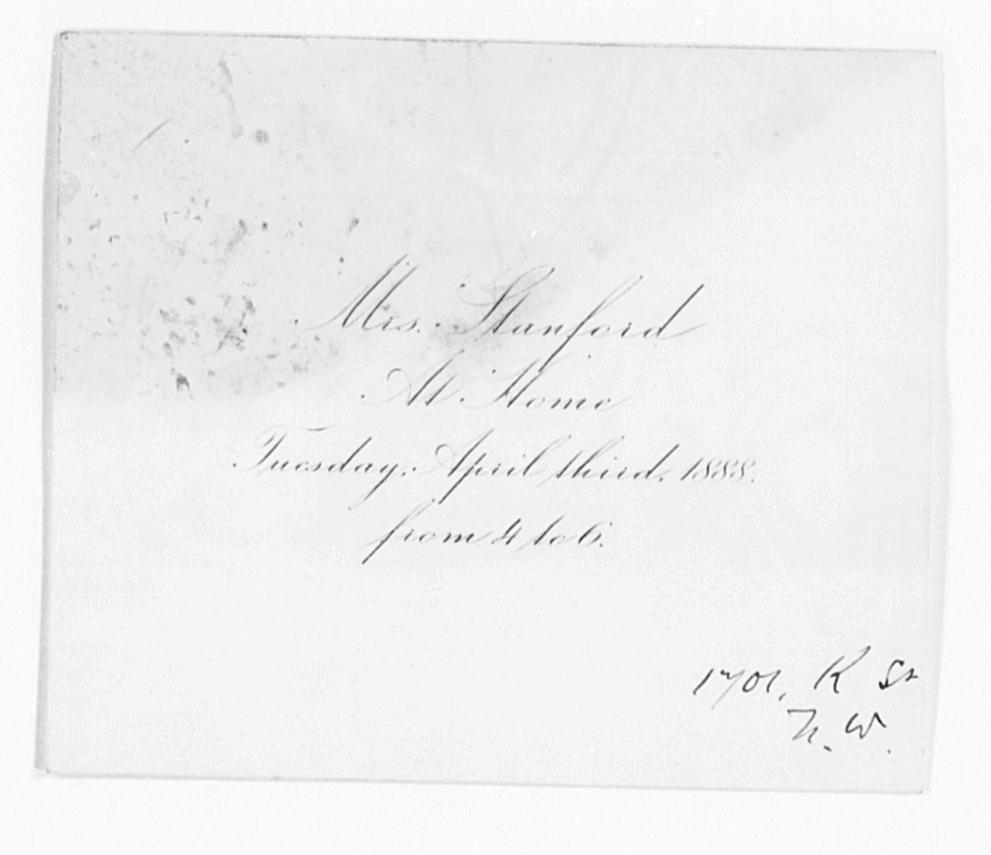 Mrs. Stanford
At Home
Tuesday, April third, 1888.
from 4 to 6.
1701, K St
N. W.